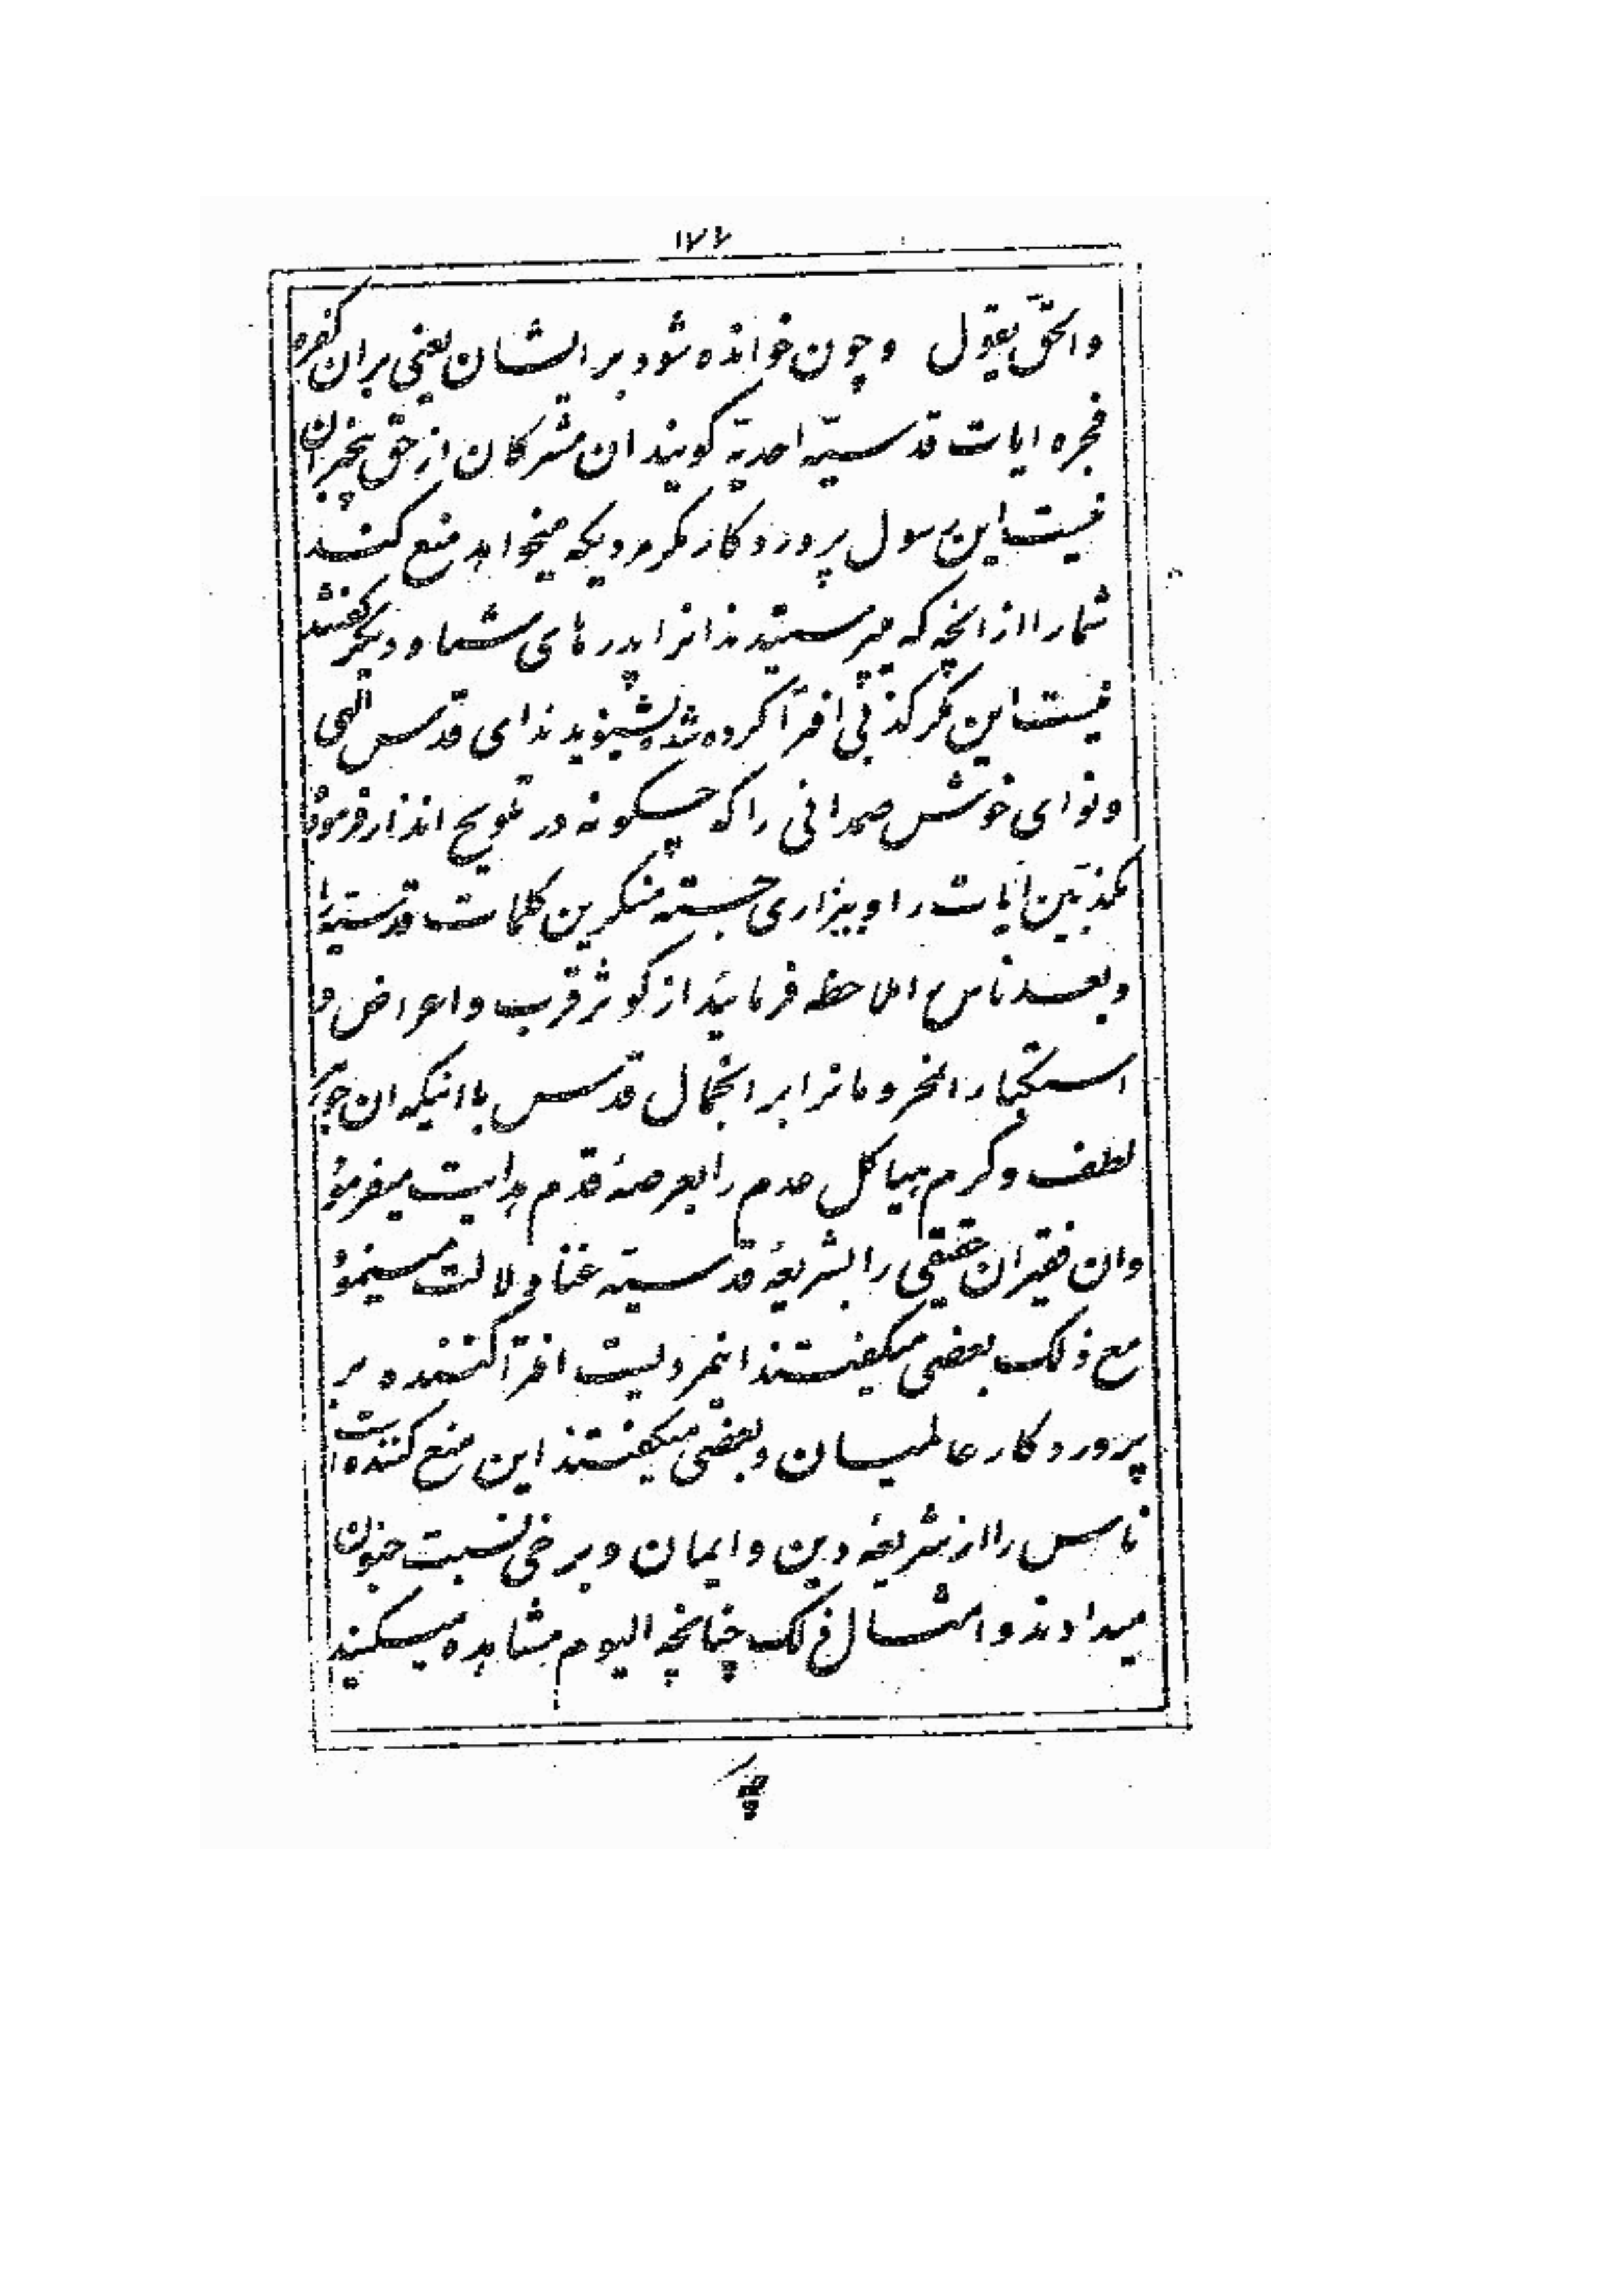 ١٧٧
والحقّ يقول و چون خوانده شود بر ايشان يعنی بر ان کفرهٴ
فجره ايات قدسيّه احديّه کويند ان مشرکان از حق بيخبران
نيست اين رسول پروردکار مکر مرديکه ميخواهد منع کند
شما را از انچه که ميپرستيدند انرا پدرهای شما و ديکر کفتند
نيست اين مکر کذبی افترا کرده شده بشنويد ندای قدس الهی
و نوای خوش صمدانی را که چکونه در تلويح انذار فرموده
مکذبين ايات را و بيزاری جسته منکرين کلمات قدسيّه را
و بعد ناس را ملاحظه فرمائيد از کوثر قرب و اعراض و
استکبار ان محرومانرا بر انجمال قدس با اينکه ان جوهر
لطف و کرم هياکل عدم را بعرصهٴ قدم هدايت ميفرمود
و ان فقيران حقيقی را بشريعهٴ قدسيّه غنا دلالت مينمود
مع ذلک بعضی ميکفتند اينمرديست افترا کننده بر
پروردکار عالميان و بعضی ميکفتند اين منع کننده است
ناس را از شريعهٴ دين و ايمان و برخی نسبت جنون
ميدادند و امثال ذلک چنانچه اليوم مشاهده ميکنيد
که چه